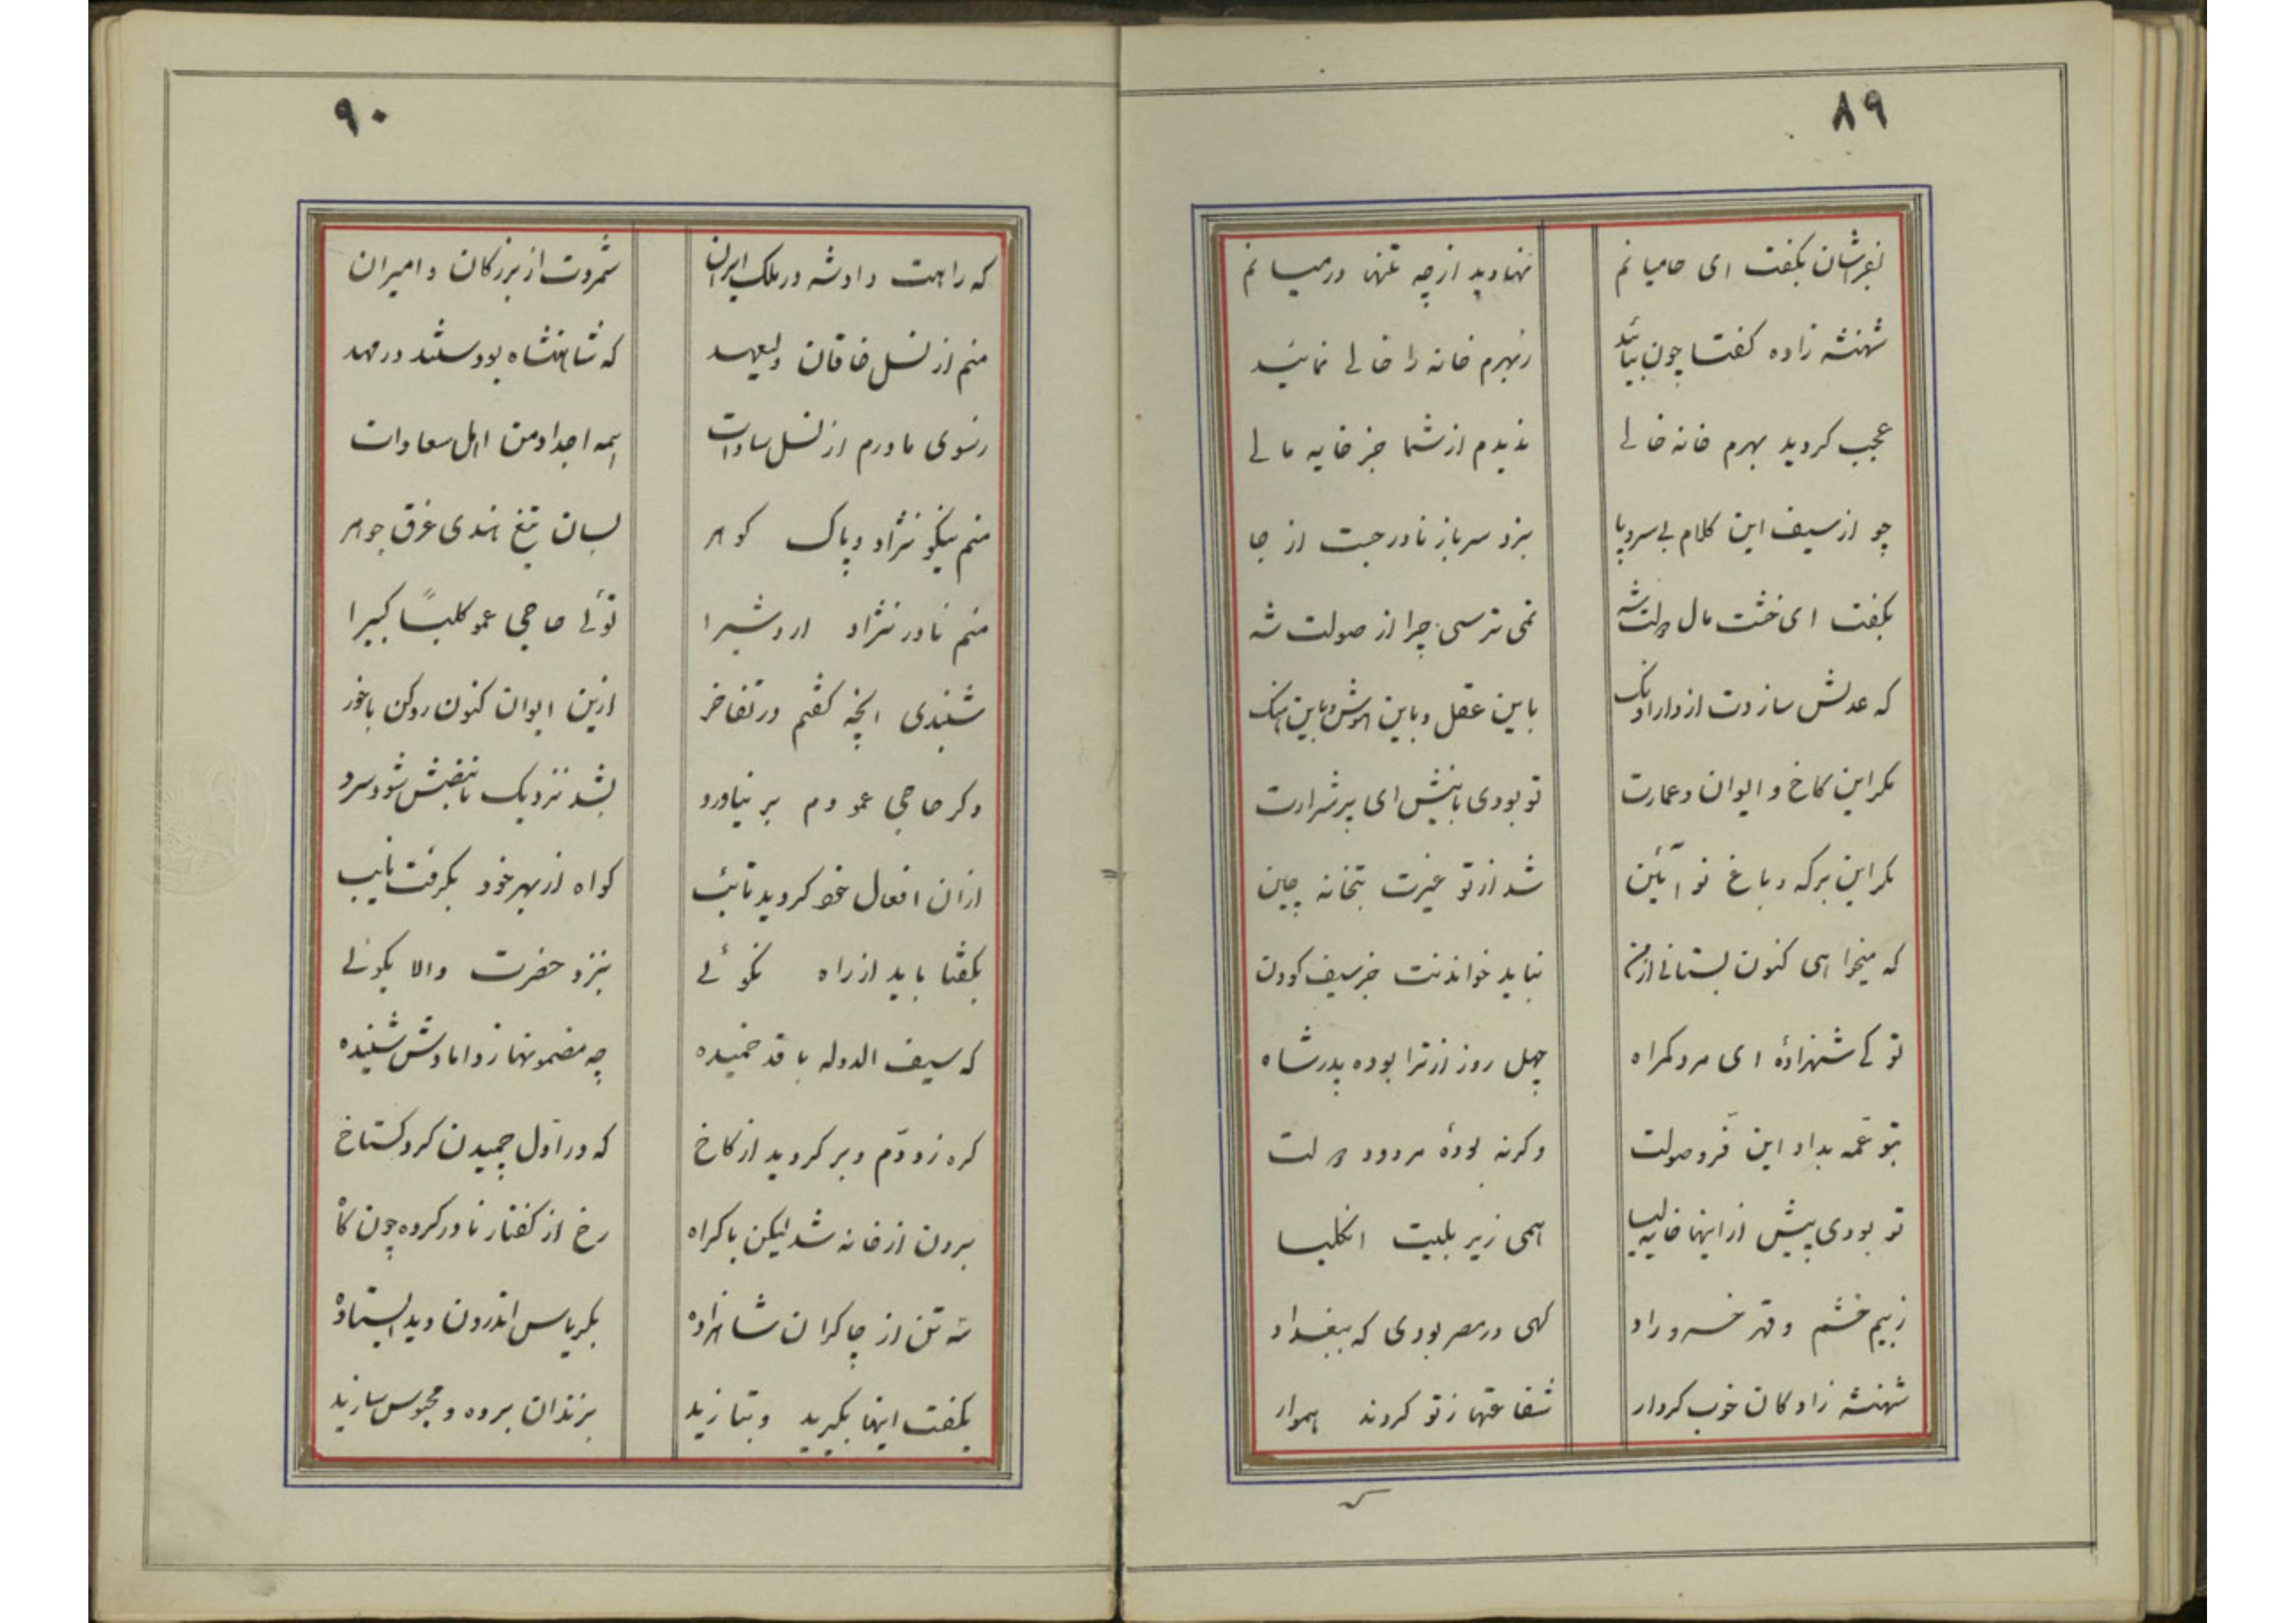 ۸۹
بفراشان بگفت ای حامیانم    نهادید از چه تنها در میانم
شهنشه زاده گفتا چون بیائید    ز بهرم خانه را خالی نمائید
عجب کردید بهرم خانه خالی    ندیدم از شما جز خایه مالی
چو از سیف این کلام بی سر و پا    بزد سرباز نادر جست از جا
بگفت ای خشت مال دولت شه    نمی ترسی چرا از صولت شه
که عدلش سازدت از دار آونک    باین عقل و باین هوش و باین هنک
مکر این کاخ و ایوان و عمارت    تو بودی بانیش ای پر شرارت
مکر این برکه و باغ نو آئین    شد از تو غیرت بتخانه چین
که میخواهی کنون بستانی از من    نباید خواندنت جز سیف کودن
تو کی شهزادهٔ ای مرد کمراه    چهل روز از ترا بوده پدر شاه
بتو عمه بداد این فر و صولت    وکرنه بودهٔ مردود دولت
تو بودی پیش از اینها خایه لیسا    همی زیر بلیت انکلیسا
ز بیم خشم و قهر خسرو راد    کهی در مصر بودی که ببغداد
شهنشه زادکان خوب کردار    شفاعتها ز تو کردند هموار
۹۰
که راهت داد شه در ملک ایران    شمردت از بزرکان و امیران
منم از نسل خاقان ولیعهد    که شاهنشاه بودستند در مهد
ز سوی مادرم از نسل سادات    همه اجداد من اهل سعادات
منم نیکو نژاد و پاک کوهر    بسان تیغ هندی غرق جوهر
منم نادر نژاد اردشیرا    توئی حاجی عمو کلباً کبیرا
شنیدی انچه کفتم در تفاخر    ازین ایوان کنون رو کن باخور
دکر حاجی عمو دم بر نیاورد    بشد نزدیک تا نبضش شود سرد
از ان افعال خود کردید تائب    کواه از بهر خود بکرفت نایب
بکفتا باید از راه نکوئی    بنزد حضرت والا بکوئی
که سیف الدوله با قد خمیده    چه مضمونها ز دامادش شنیده
کره زد دم و بر کردید از کاخ    که در اول چمیدن کرد کستاخ
برون از خانه شد لیکن باکراه    رخ از کفتار نادر کرده چون کاه
سه تن از چاکران شاهزاده    بکریاس اندرون دید ایستاده
بکفت اینها بکیرید و بتازید    بزندان برده و محبوس سازید